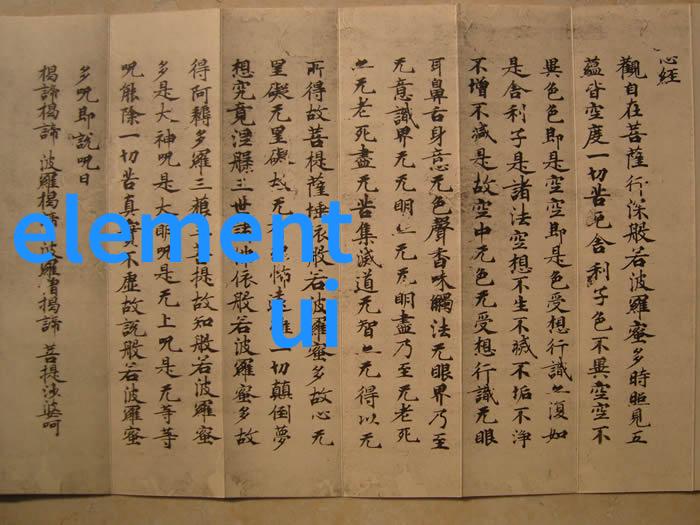 心经
觀自在菩薩行深般若波羅蜜多時照見五
蘊皆空度一切苦厄舍利子色不異空空不
異色色即是空空即是色受想行識亦復如
是舍利子是諸法空想不生不滅不垢不淨
不增不減是故空中无色无受想行識无眼
耳鼻舌身意无色聲香味觸法无眼界乃至
无意識界无无明亦无无明盡乃至无老死
亦无老死盡无苦集滅道无智亦无得以无
所得故菩提薩埵依般若波羅蜜多故心无
罣礙无罣礙故无怖遠離一切顛倒夢
想究竟涅槃三世依般若波羅蜜多故
得阿耨多羅三藐菩提故知般若波羅蜜
多是大神呪是大明呪是无上呪是无等等
呪能除一切苦真實不虛故說般若波羅蜜
多呪即說呪曰
揭諦揭諦 波羅揭諦 波羅僧揭諦 菩提莎婆呵
element
ui